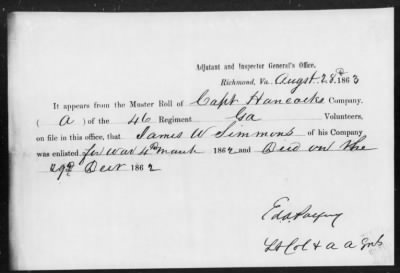 Adjutant and Inspector General's Office,
Richmond, Va. Augst 28th 1863
It appears from the Muster Roll of Capt Hancocks Company.
( A ) of the 46 Regiment Ga Volunteers,
on file in this office, that James W Simmons of his Company
was enlisted for War 4th March 1862 and Died on the
29th 1862
Lt Col & A A Genl